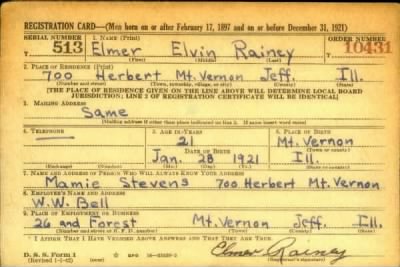 REGISTRATION CARD—(Men born on or after February 17, 1897 and on or before December 31, 1921)
SERIAL NUMBER 1. NAME (Print) ORDER NUMBER
513 Elmer Elvin Rainey 10431
(First) (Middle) (Last)
2. PLACE OF RESIDENCE (Print)
700 Herbert Mt. Vernon Jeff. Ill.
(Number and street) (Town, township, village, or city) (County) (State)
[THE PLACE OF RESIDENCE GIVEN ON THE LINE ABOVE WILL DETERMINE LOCAL BOARD
JURISDICTION; LINE 2 OF REGISTRATION CERTIFICATE WILL BE IDENTICAL]
3. MAILING ADDRESS
Same
(Mailing address if other than place indicated on line 2. If same insert word same)
4. TELEPHONE 5. AGE IN YEARS 6. PLACE OF BIRTH
21 Mt. Vernon
DATE OF BIRTH
Jan. 28 1921 Ill.
(Exchange) (Number) (Mo.) (Day) (Yr.)
7. NAME AND ADDRESS OF PERSON WHO WILL ALWAYS KNOW YOUR ADDRESS
Mamie Stevens 700 Herbert Mt. Vernon
8. EMPLOYER'S NAME AND ADDRESS
W. W. Bell
9. PLACE OF EMPLOYMENT OR BUSINESS
26 and Forest Mt. Vernon Jeff. Ill.
(Number and street or R. F. D. number) (Town) (County) (State)
I AFFIRM THAT I HAVE VERIFIED ABOVE ANSWERS AND THAT THEY ARE TRUE.
D. S. S. Form 1
(Revised 1-1-42) GPO Elmer Rainey
(Registrant's signature)